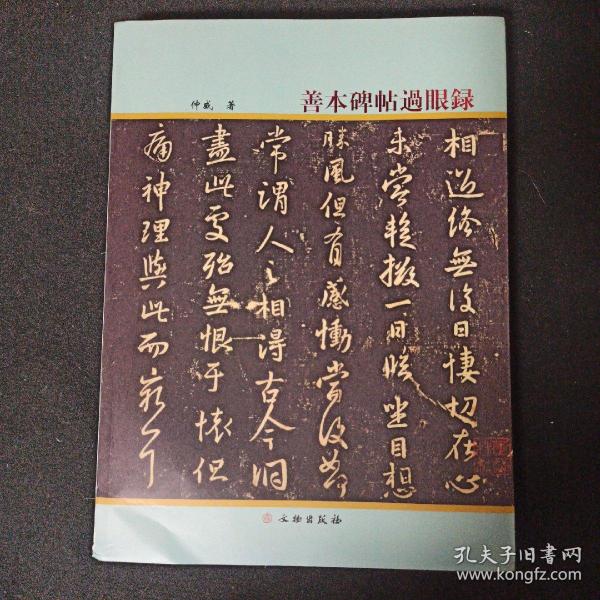 善本碑帖過眼録
仲威 著
相過終無復日悽切在心
未嘗暫掇一日臨坐目想
勝風但有感慟當復如何
常謂人之相得古今洞
盡此處殆無恨于懷但
痛神理與此而窮耳
文物出版社
孔夫子旧書网
www.kongfz.com